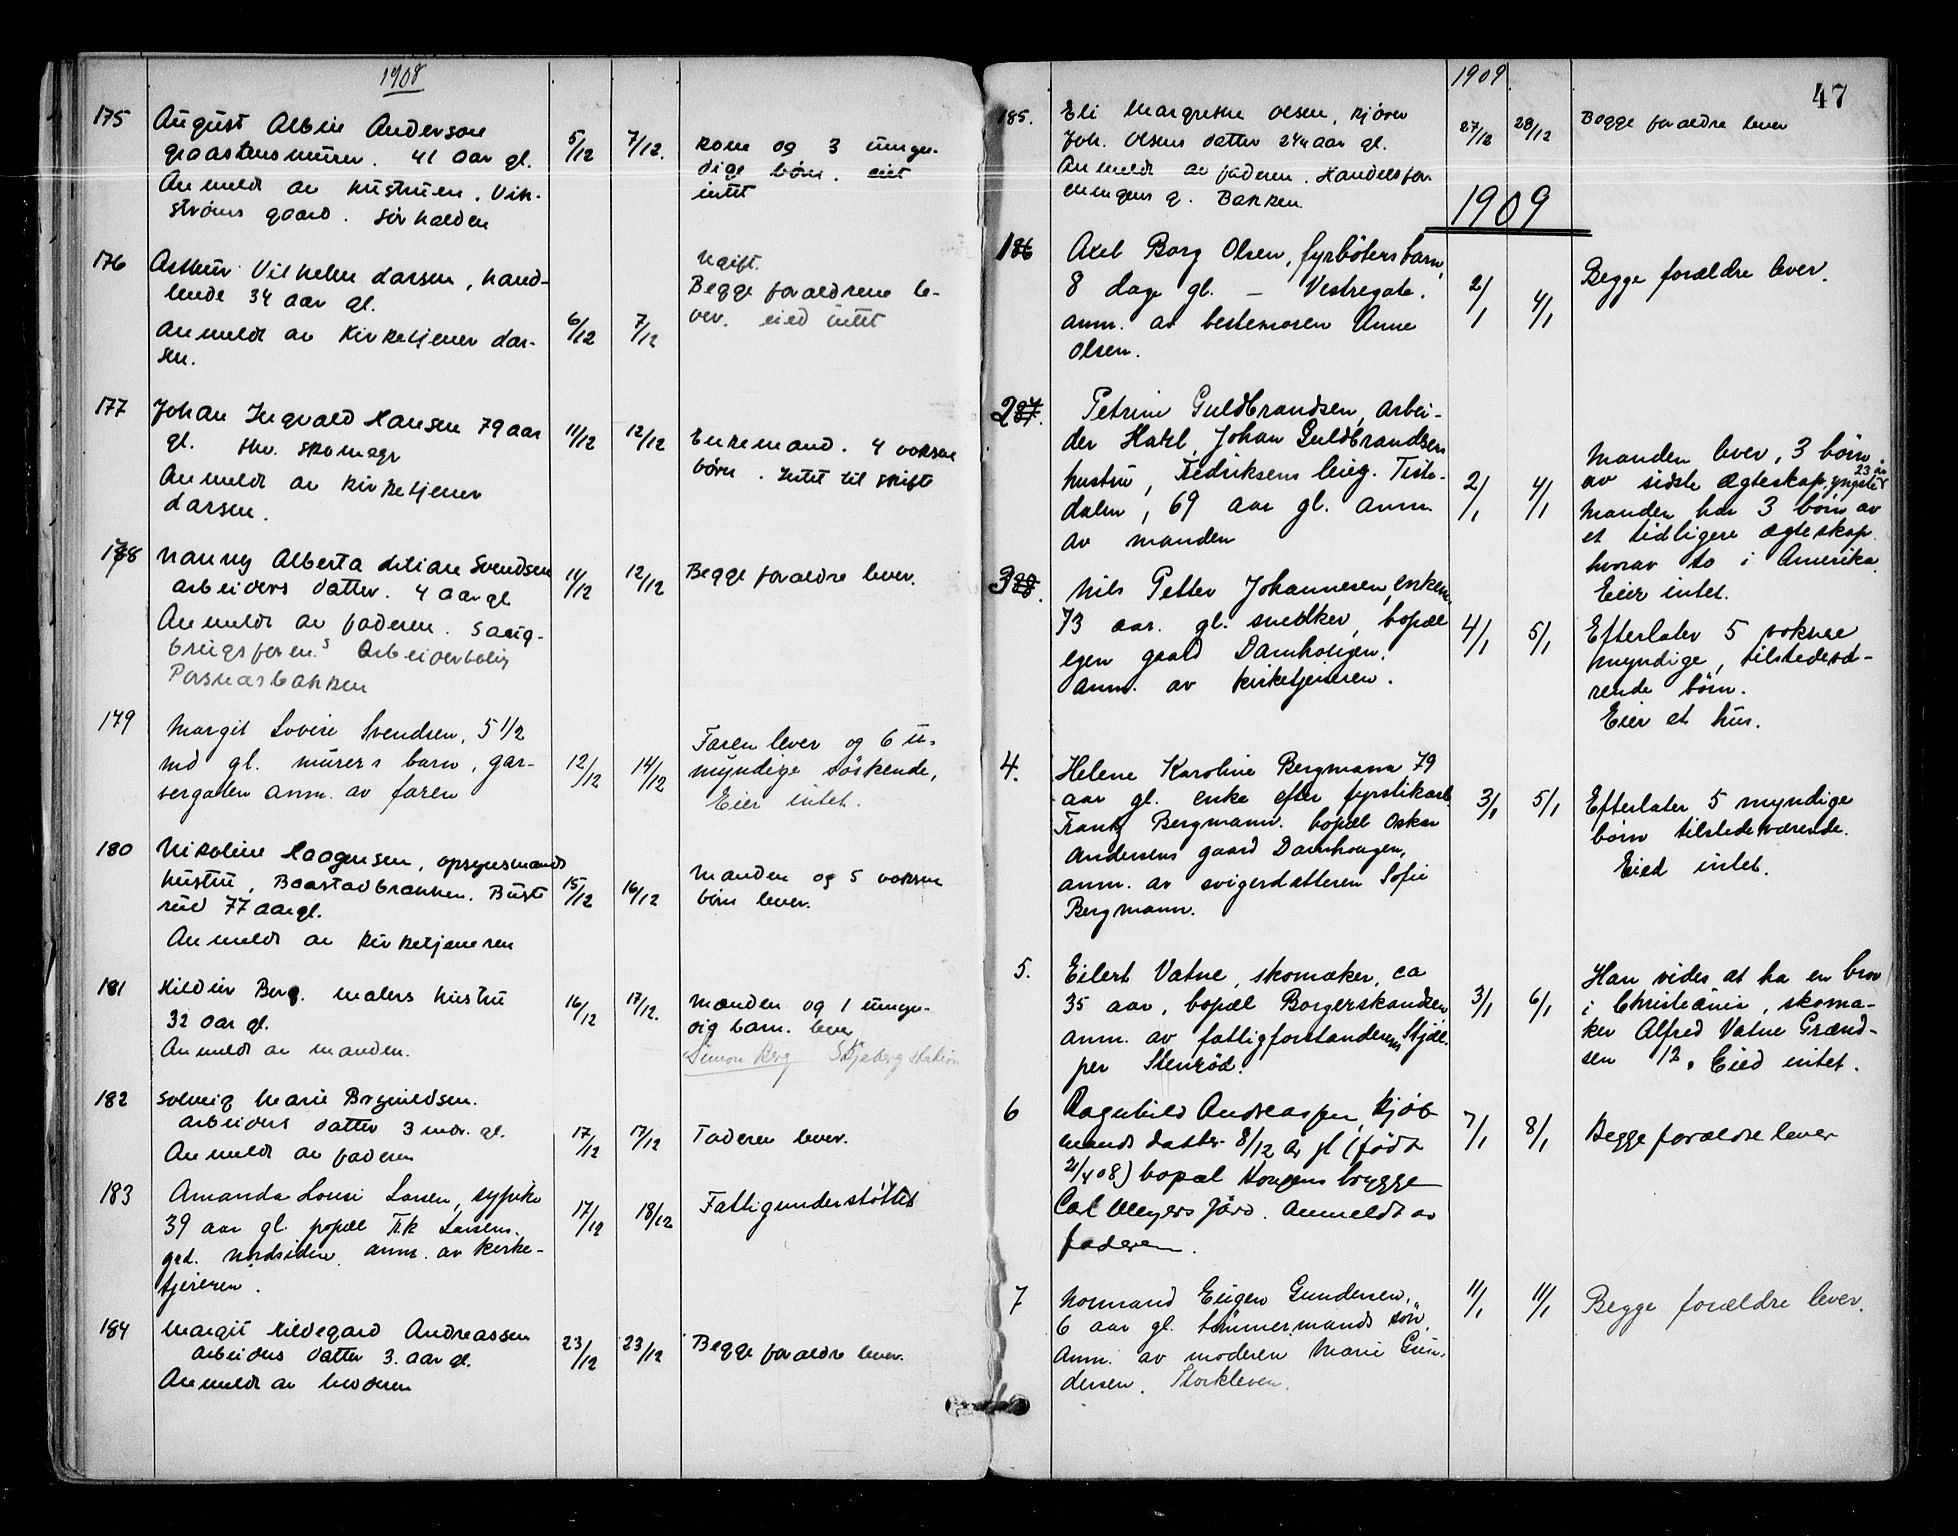 1908
175
August Albin Anderson
graastensmurer. 41 aar gl.
Anmeldt av hustruen. Vik-
strøms gaard. Sørhalden
5/12
7/12.
Kone og 3 umyn-
dige børn. eiet
intet
176
Arthur Vilhelm Larsen, hand-
lende 34 aar gl.
Anmeldt av Kirketjener Lar-
sen.
6/12
7/12
Ugift.
Begge foraeldrene le-
ver. eied intet
177
Johan Ingvald Hansen 79 aar
gl. fhv. skomagr
Anmeldt av Kirketjener
Larsen.
11/12
12/12
Enkemand. 4 voksne
børn. Intet til skifte
178
Nanny Alberta Lilian Svendsen
arbeiders datter. 4 aar gl
Anmeldt av faderen. Saug-
brugsforen.s Arbeiderbolig
Porsnæsbakken
11/12
12/12
Begge foraeldre lever.
179
Margit Lovise Svendsen, 5 1/2
md gl. murers barn, gar-
vergaten anm. av faren
12/12
14/12
Faren lever og 6 u-
myndige søskende,
Eier intet.
180
Nikoline Haagensen, opsynsmands
hustru, Baastadbrakken. Buste
rud 77 aar gl.
Anmeldt av Kirketjeneren
15/12
16/12
Manden og 5 voksne
børn lever.
181
Hildur Berg. malers hustru
32 aar gl.
Anmeldt av manden.
16/12
17/12.
Manden og 1 umyn-
dig barn. lever
Simon Berg Skjeberg station
182
Solveig Marie Brynildsen.
arbeiders datter 3 mdr. gl.
Anmeldt av faderen
17/12
17/12
Faderen lever.
183
Amanda Lovise Larsen, sypike
39 aar gl. popæl Frk Larsens.
grd. Nordsiden. anm. av kirke-
tjeneren.
17/12
18/12
Fattigunderstøttet
184
Margit Hildegard Andreassen
arbeiders datter 3. aar gl.
Anmeldt av moderen
23/12
23/12
Begge foraeldre lever.
1909
47
185.
Eli Margrethe Olsen, kjører
Joh. Olsens datter 2 1/4 aar gl.
Anmeldt av faderen. Handelsfor
eningens g. Bakken
27/12
28/12
Begge foraeldre lever
1909
186
Axel Borg Olsen, fyrbøters barn,
8 dage gl. – Vestregate.
anm. av bestemoren Anne
Olsen.
2/1
4/1
Begge forældre lever.
287.
Petrine Guldbrandsen, arbei-
der Johan Guldbrandsens
hustru, Fredriksens leieg. Tiste-
dalen, 69 aar gl. anm.
av manden
2/1
4/1
Manden lever, 3 børn
av sidste ægteskap, yngste 23 år
Manden har 3 børn av
et tidligere ægteskap.
hvorav to i Amerika.
Eier intet.
388.
Nils Petter Johannesen, enkem.
73 aar. gl. snedker, bopæl
egen gaard Damhaugen.
anm. av kirketjeneren.
4/1
5/1
Efterlater 5 voksne
myndige, tilstedevæ-
rende børn.
Eier et hus.
4.
Helene Karoline Bergmann 79
aar gl. enke efter fyrstikarb.
Frantz Bergmann. bopæl Oskar
Andersens gaard Damhaugen,
anm. av svigerdatteren Sofie
Bergmann.
3/1
5/1
Efterlater 5 myndige
børn tilstedeværende.
Eied intet.
5.
Eilert Vatne, skomaker, ca
35 aar, bopæl Borgerskandsen,
anm. av fattigforstanderens Hjæl-
per Stenrød.
3/1
6/1
Han vides at ha en bror
i Christiania, skoma-
ker Alfred Vatne Grænd-
sen 12. Eied intet.
6
Ragnhild Andreassen, Kjøb
mands datter 8/12 år gl (født
21/4 08) bopæl Kongens brygge
Carl Meyers Gård. Anmeldt av
faderen.
7/1
8/1
Begge forældre lever
7
Normand Eugen Gundersen,
6 aar gl. tømmermands søn,
Anm. av moderen Marie Gun-
dersen. Storkleven.
11/1
11/1
Begge forældre lever.